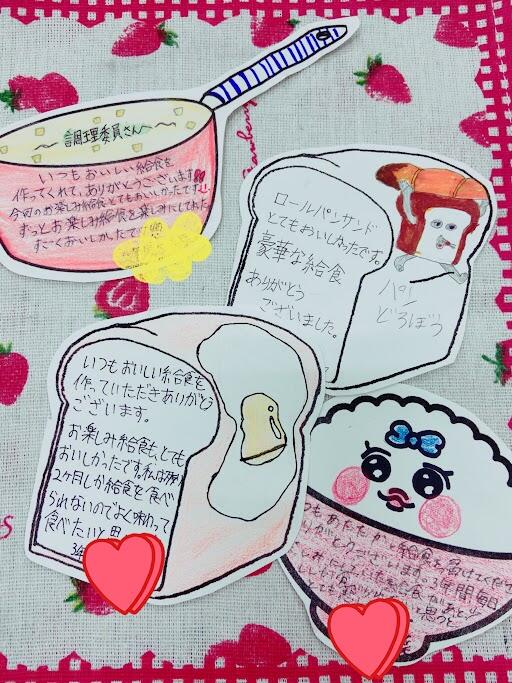 調理委員さんへ
いつもおいしい給食を
作ってくれて、ありがとうございます!!
今回のお楽しみ給食とてもおいしかったです。
ずっとお楽しみ給食を楽しみにしてた
すごくおいしかったで
ロールパンサンド
とてもおいしかったです。
豪華な給食
ありがとう
ございました。
パン
どろぼう
いつもおいしい給食を
作っていただきありがとう
ございます。
お楽しみ給食も、とても
おいしかったです。私は残り
2ヶ月しか給食を食べ
られないのでよく味わって
食べたいと思
3年
もあたたかい給食を
がとうございます。3年間毎日
と思うと